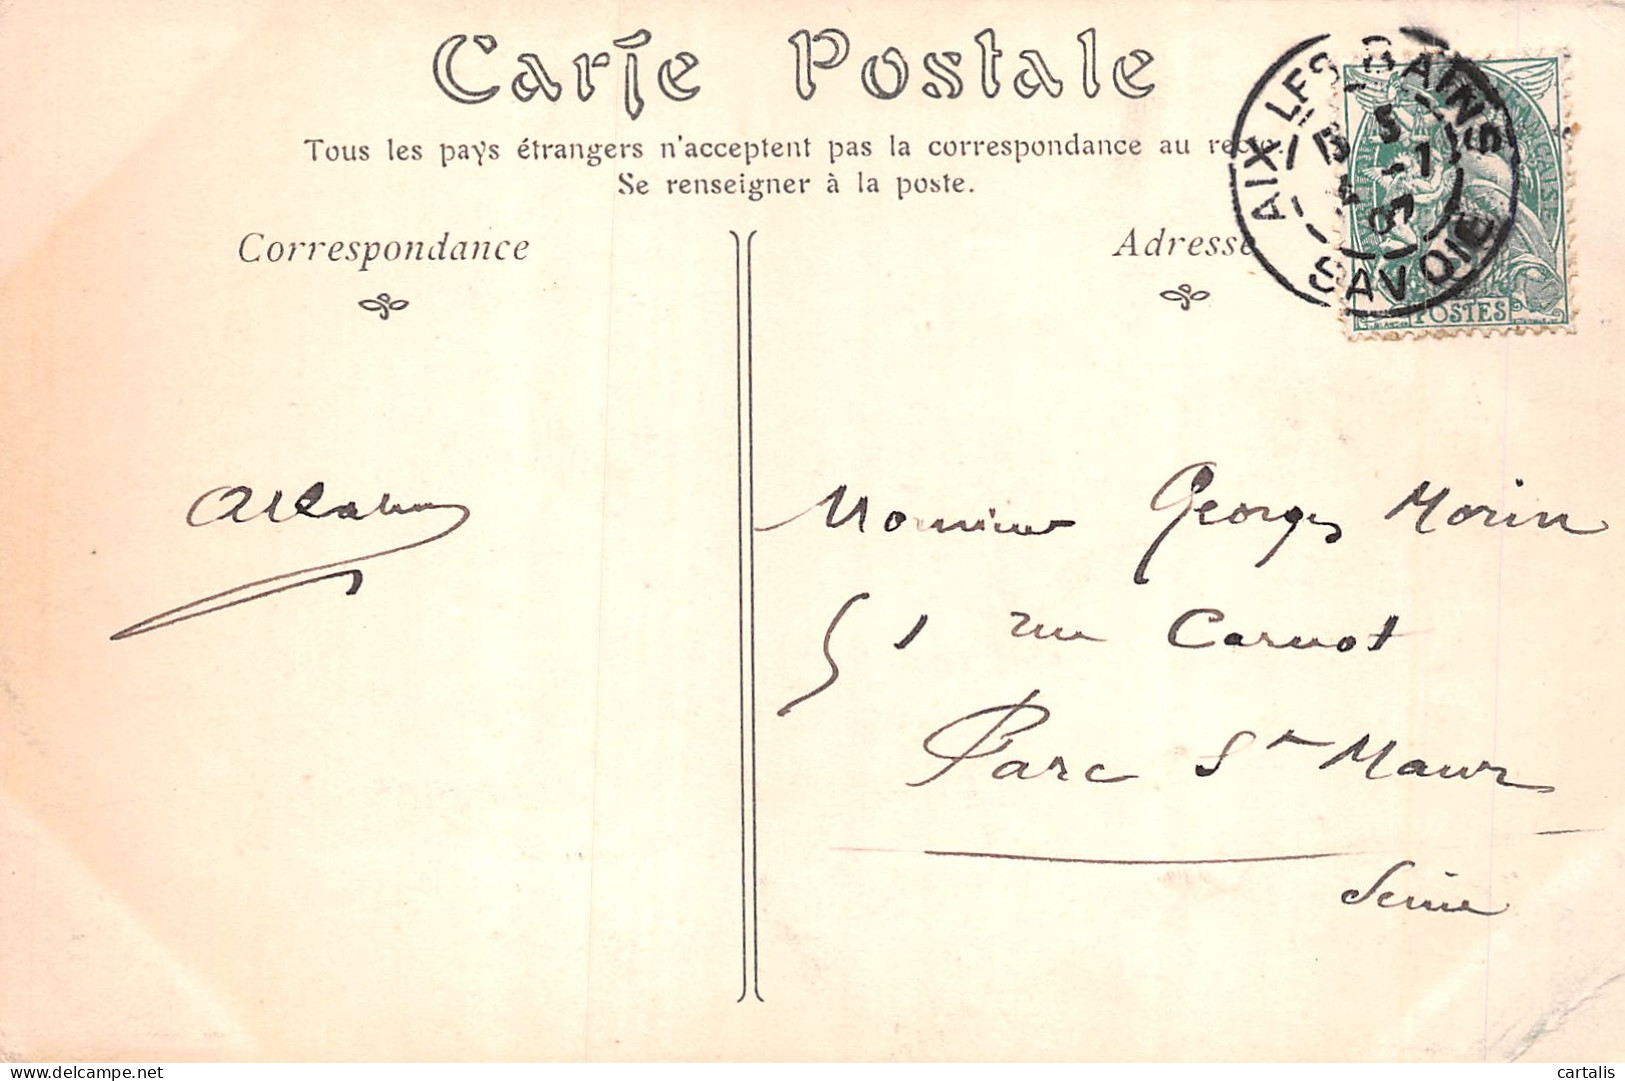 Carte Postale
Tous les pays étrangers n'acceptent pas la correspondance au recto.
Se renseigner à la poste.
Correspondance
Adresse
AIX LES BAINS
SAVOIE
POSTES
Monsieur Georges Morin
51 rue Carnot
Parc St Maur
Seine
delcampe.net
cartalis